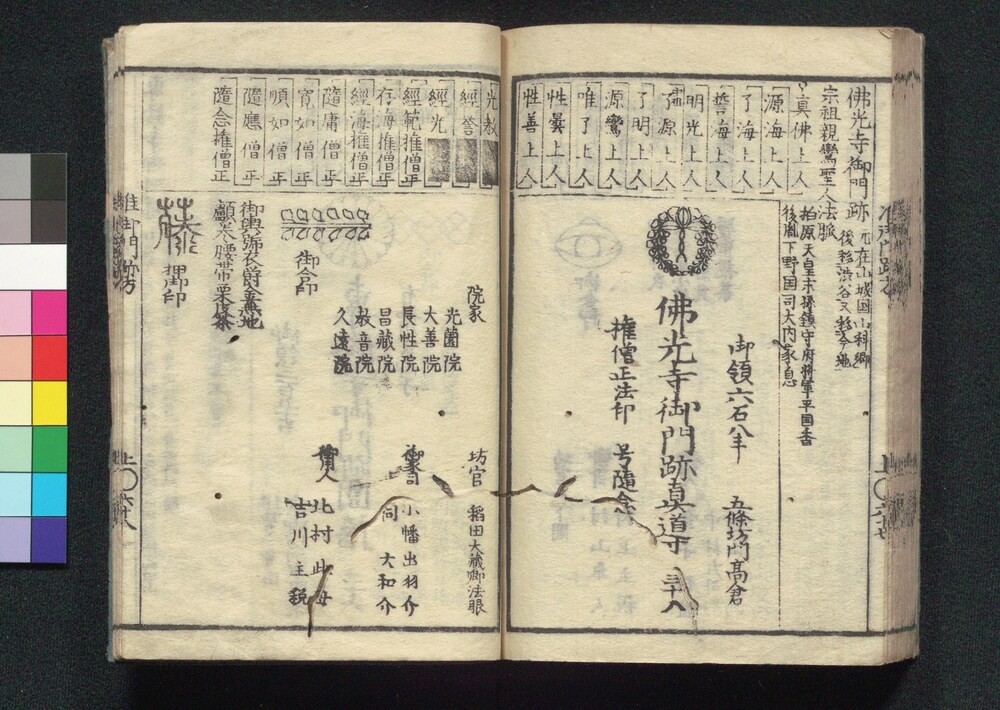 佛光寺御門跡
元在山城国山科郷
後移渋谷又移今地
宗祖親鸞聖人法脈
真佛上人
源海上人
了海上人
誓海上人
明光上人
了源上人
了明上人
源鸞上人
唯了上人
性曇上人
性善上人
光教
經誉
經光
經範権僧正
存海権僧正
經海権僧正
隨庸僧正
寛如僧正
順如僧正
隨應僧正
隨念権僧正
桓原天皇末孫鎮守府将軍平国香
後胤下野国司大内
息
御領六石八斗
五條坊門髙倉
佛光寺御門跡真導
三十八
権僧正法印
号隨念
院家
光薗院
大善院
長性院
昌藏院
教音院
久遠院
坊官
稲田大蔵卿法眼
小幡出羽介
同
大和介
北村
吉川主税
御合印
御輿
藤
押印
准御門跡方
上
六十八
上
六十七